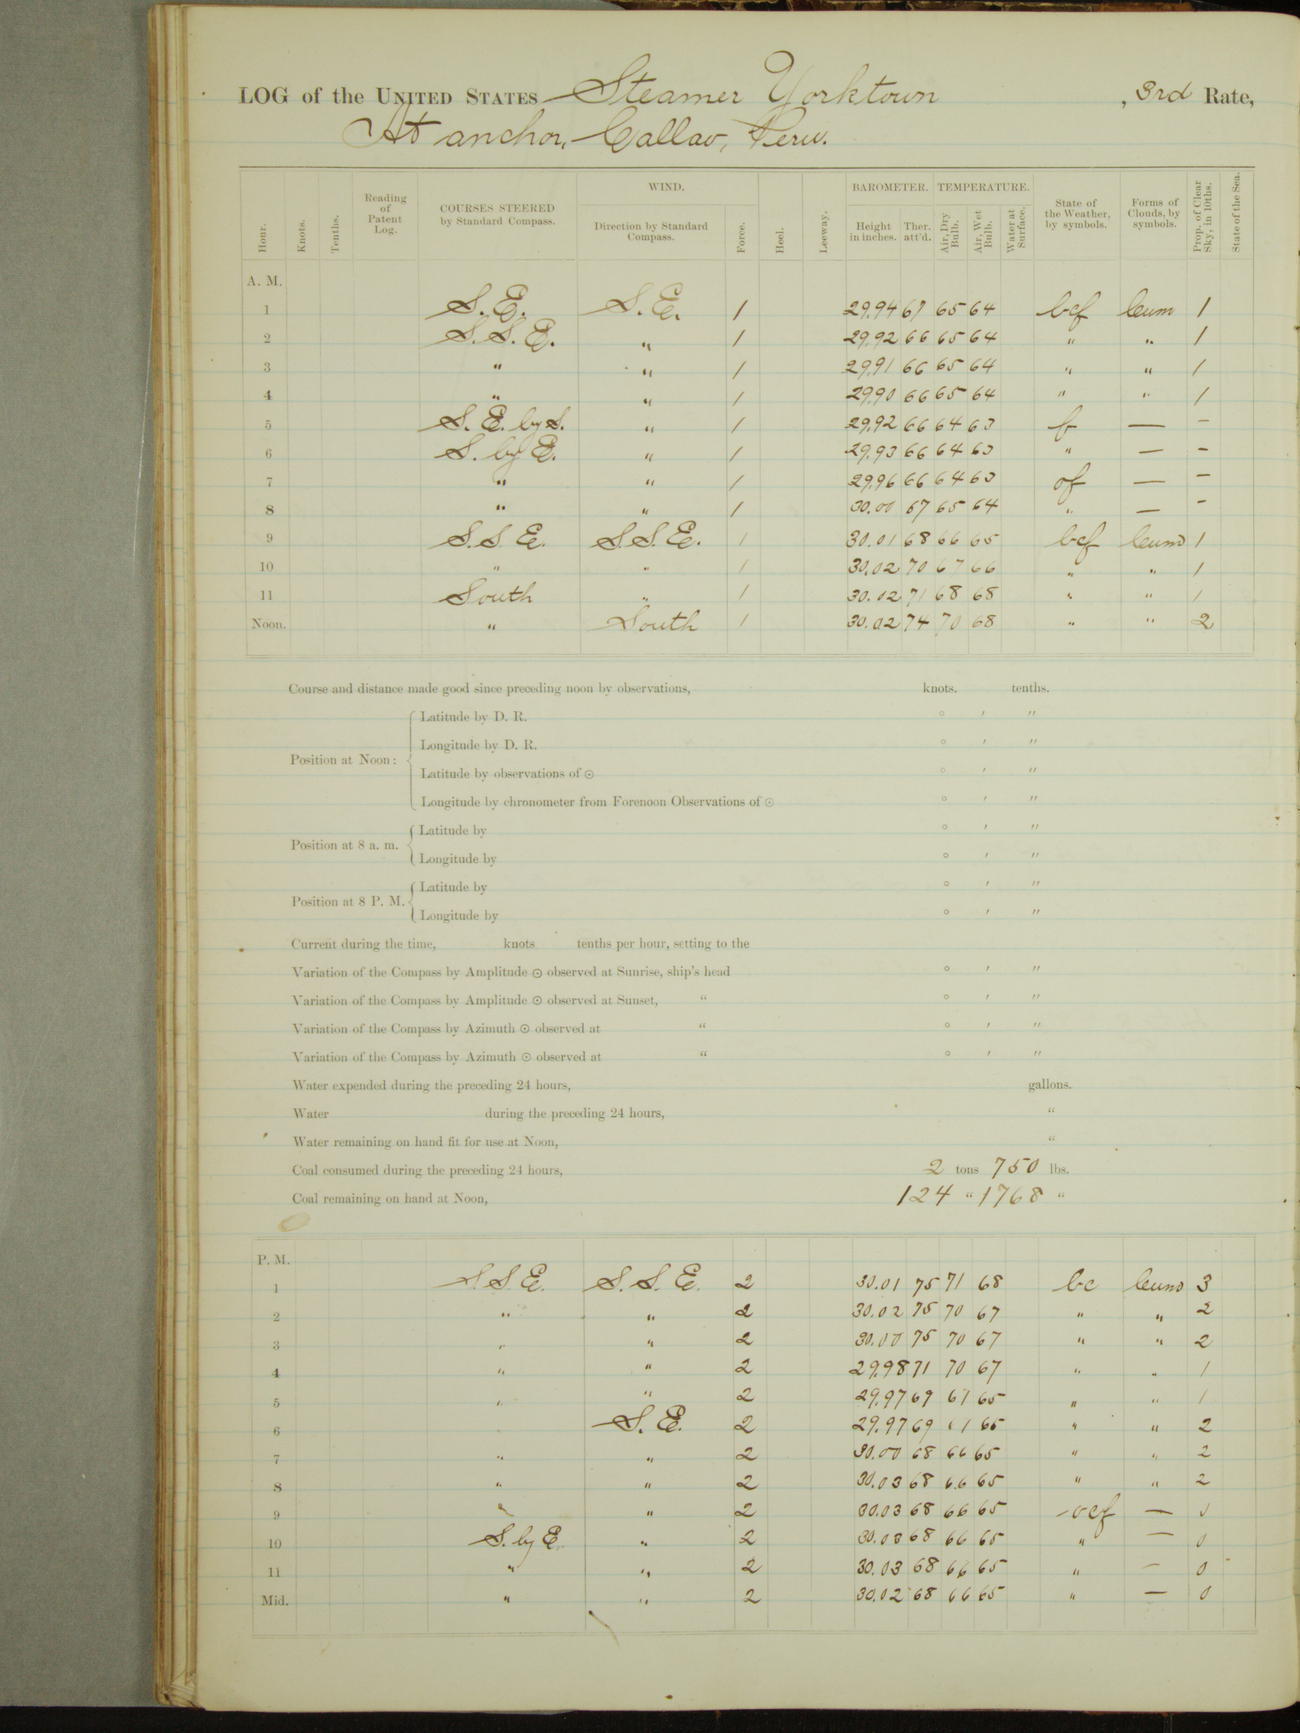 LOG of the UNITED STATES Steamer Yorktown, 3rd Rate,
At anchor, Callao, Peru.
Hour. Knots. Tenths. Reading of Patent Log. COURSES STEERED by Standard Compass. WIND. Direction by Standard Compass. Force. Heel. Leeway. BAROMETER. Height in inches. Ther. att'd. TEMPERATURE. Air, Dry Bulb. Air, Wet Bulb. Water at Surface. State of the Weather, by symbols. Forms of Clouds, by symbols. Prop. of Clear Sky, in 10ths. State of the Sea.
A. M.
1 S. E. S. E. 1 29.94 67 65 64 bcf Cum 1
2 S. S. E. " 1 29.92 66 65 64 " " 1
3 " " 1 29.91 66 65 64 " " 1
4 " " 1 29.90 66 65 64 " " 1
5 S. E. by S. " 1 29.92 66 64 63 f — –
6 S. by E. " 1 29.93 66 64 63 " — –
7 " " 1 29.96 66 64 63 of — –
8 " " 1 30.00 67 65 64 " — –
9 S. S. E. S. S. E. 1 30.01 68 66 65 bcf Cum 1
10 " " 1 30.02 70 67 66 " " 1
11 South " 1 30.02 71 68 68 " " 1
Noon. " South 1 30.02 74 70 68 " " 2
Course and distance made good since preceding noon by observations, knots. tenths.
Position at Noon:
Latitude by D. R. ° ′ ″
Longitude by D. R. ° ′ ″
Latitude by observations of ☉ ° ′ ″
Longitude by chronometer from Forenoon Observations of ☉ ° ′ ″
Position at 8 a. m.
Latitude by ° ′ ″
Longitude by ° ′ ″
Position at 8 P. M.
Latitude by ° ′ ″
Longitude by ° ′ ″
Current during the time, knots tenths per hour, setting to the
Variation of the Compass by Amplitude ☉ observed at Sunrise, ship's head ° ′ ″
Variation of the Compass by Amplitude ☉ observed at Sunset, " ° ′ ″
Variation of the Compass by Azimuth ☉ observed at " ° ′ ″
Variation of the Compass by Azimuth ☉ observed at " ° ′ ″
Water expended during the preceding 24 hours, gallons.
Water during the preceding 24 hours, "
Water remaining on hand fit for use at Noon, "
Coal consumed during the preceding 24 hours, 2 tons 750 lbs.
Coal remaining on hand at Noon, 124 " 1768 "
P. M.
1 S. S. E. S. S. E. 2 30.01 75 71 68 bc Cum 3
2 " " 2 30.02 75 70 67 " " 2
3 " " 2 30.00 75 70 67 " " 2
4 " " 2 29.98 71 70 67 " " 1
5 " " 2 29.97 69 67 65 " " 1
6 " S. E. 2 29.97 69 65 " " 2
7 " " 2 30.00 68 66 65 " " 2
8 " " 2 30.03 68 66 65 " " 2
9 " " 2 30.03 68 66 65 ocf — 0
10 S. by E. " 2 30.03 68 66 65 " — 0
11 " " 2 30.03 68 66 65 " — 0
Mid. " " 2 30.02 68 66 65 " — 0